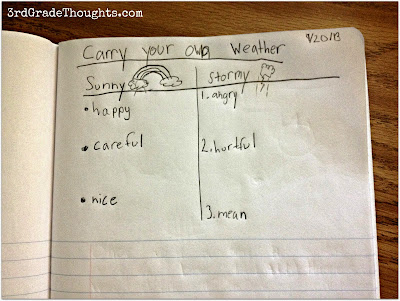 3rdGradeThoughts.com
9/20/13
Carry your own Weather
Sunny
• happy
• careful
• nice
Stormy
1. angry
2. hurtful
3. mean